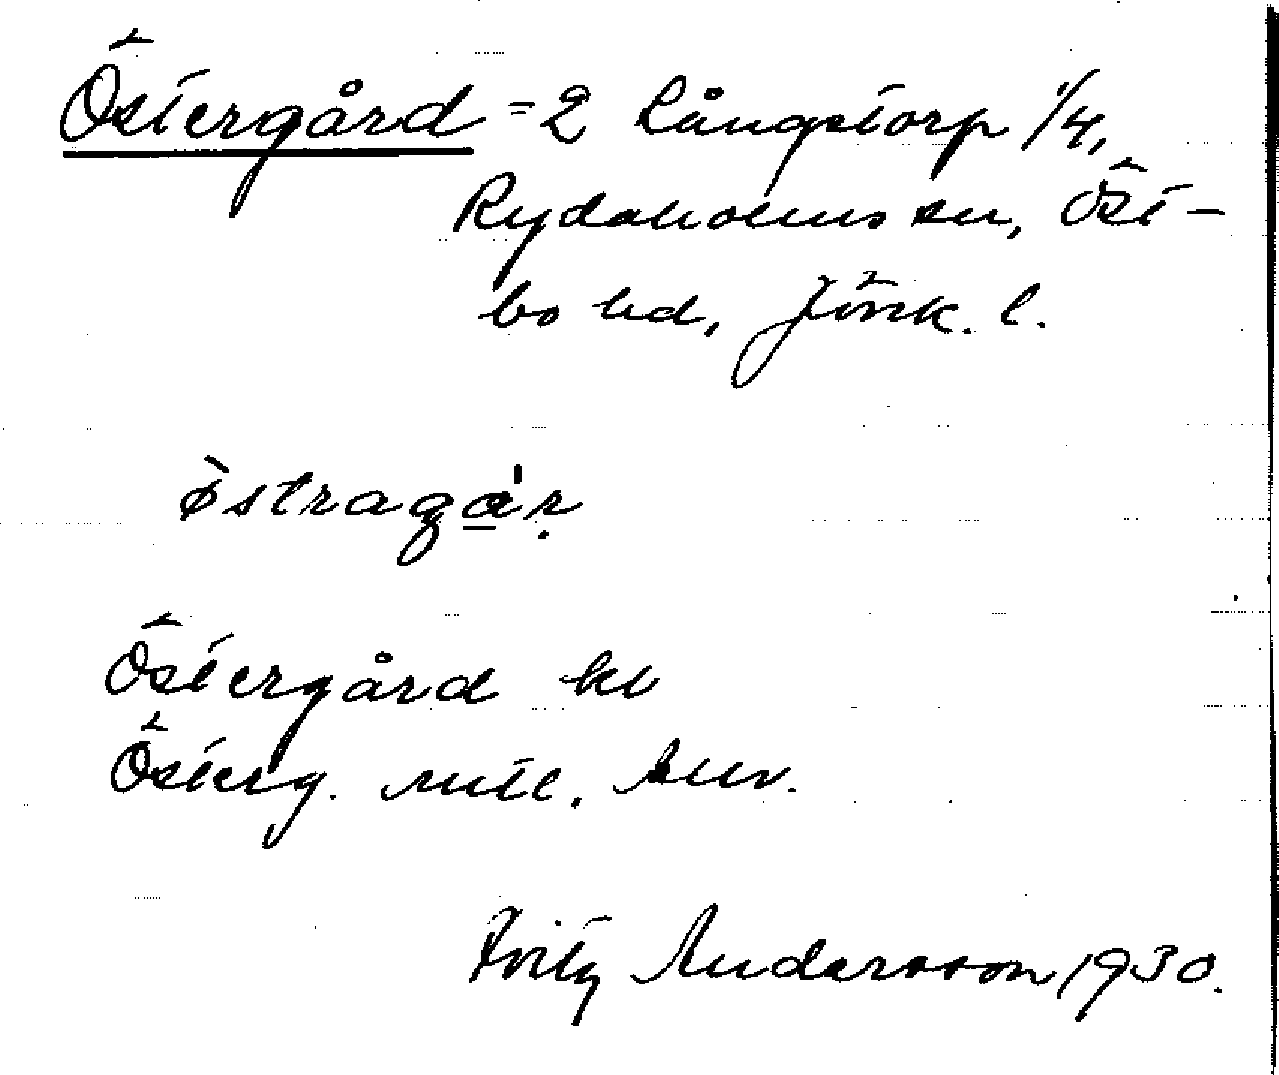 Östergård = 2 Långstorp 1/4,
Rydaholms sn, Öst-
bo hd, Jönk. l.
östragár
Östergård kl
Österg.
Fritz Andersson 1930.